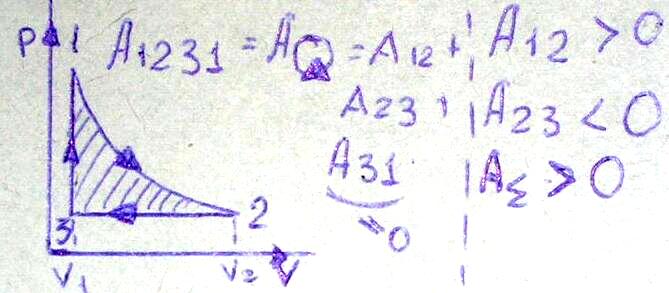 P 1 A₁₂₃₁ = A = A₁₂ + A₁₂ > 0
A₂₃ + A₂₃ < 0
A₃₁ A_Σ > 0
3 2 = 0
V₁ V₂ V